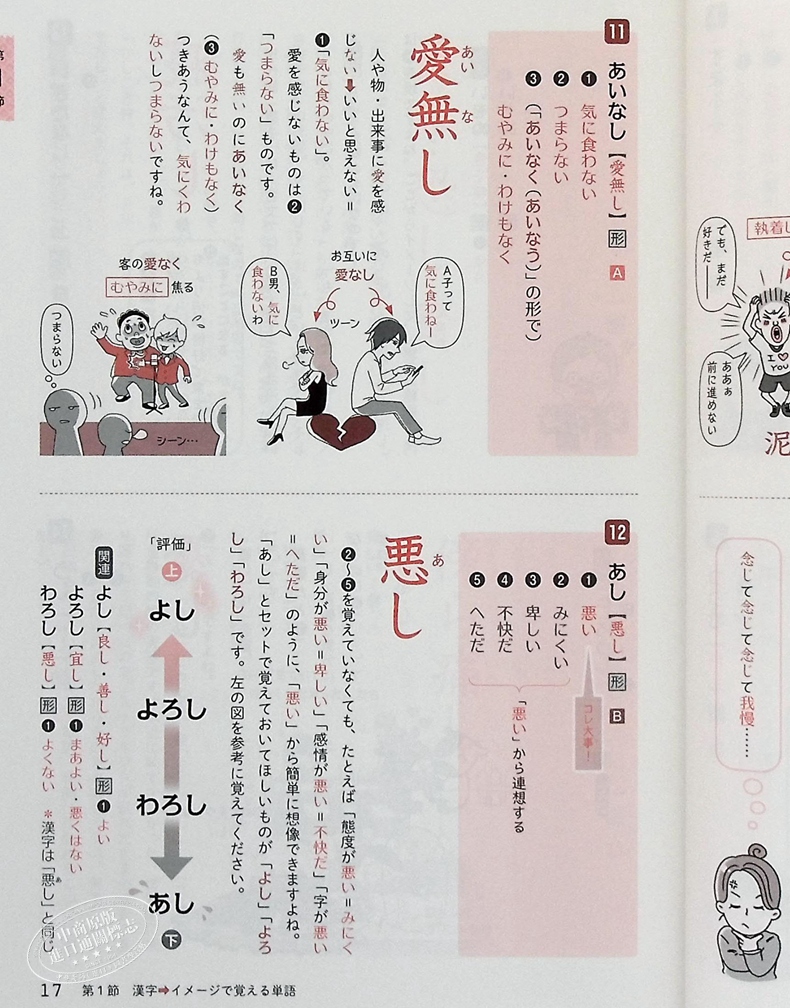 11 あいなし【愛無し】形 A
❶ 気に食わない
❷ つまらない
❸ (「あいなく(あいなう)」の形で)
むやみに・わけもなく
愛無し
あい な
人や物・出来事に愛を感
じない➡いいと思えない=
❶「気に食わない」。
愛を感じないものは❷
「つまらない」ものです。
愛も無いのにあいなく
(❸むやみに・わけもなく)
つきあうなんて、気にくわ
ないしつまらないですね。
A子って
気に食わねー
お互いに
愛なし
ツーン
B男、気に
食わないわ
客の愛なく
むやみに焦る
つまらない
シーン…
12 あし【悪し】形 B
❶ 悪い
コレ大事!
❷ みにくい
❸ 卑しい
❹ 不快だ
❺ へただ
「悪い」から連想する
悪し
あ
❷〜❺を覚えていなくても、たとえば「態度が悪い=みにく
い」「身分が悪い=卑しい」「感情が悪い=不快だ」「字が悪い
=へただ」のように、「悪い」から簡単に想像できますよね。
「あし」とセットで覚えておいてほしいものが「よし」「よろ
し」「わろし」です。左の図を参考に覚えてください。
「評価」
上
よし
よろし
わろし
あし
下
関連 よし【良し・善し・好し】形 ❶ よい
よろし【宜し】形 ❶ まあよい・悪くはない
わろし【悪し】形 ❶ よくない *漢字は「悪し」と同じ
あ
17 第1節 漢字➡イメージで覚える単語
でも、まだ
好きだ――
ああぁ
前に進めない
I
YOU
念じて念じて念じて我慢……
中商原版
进口通關標志